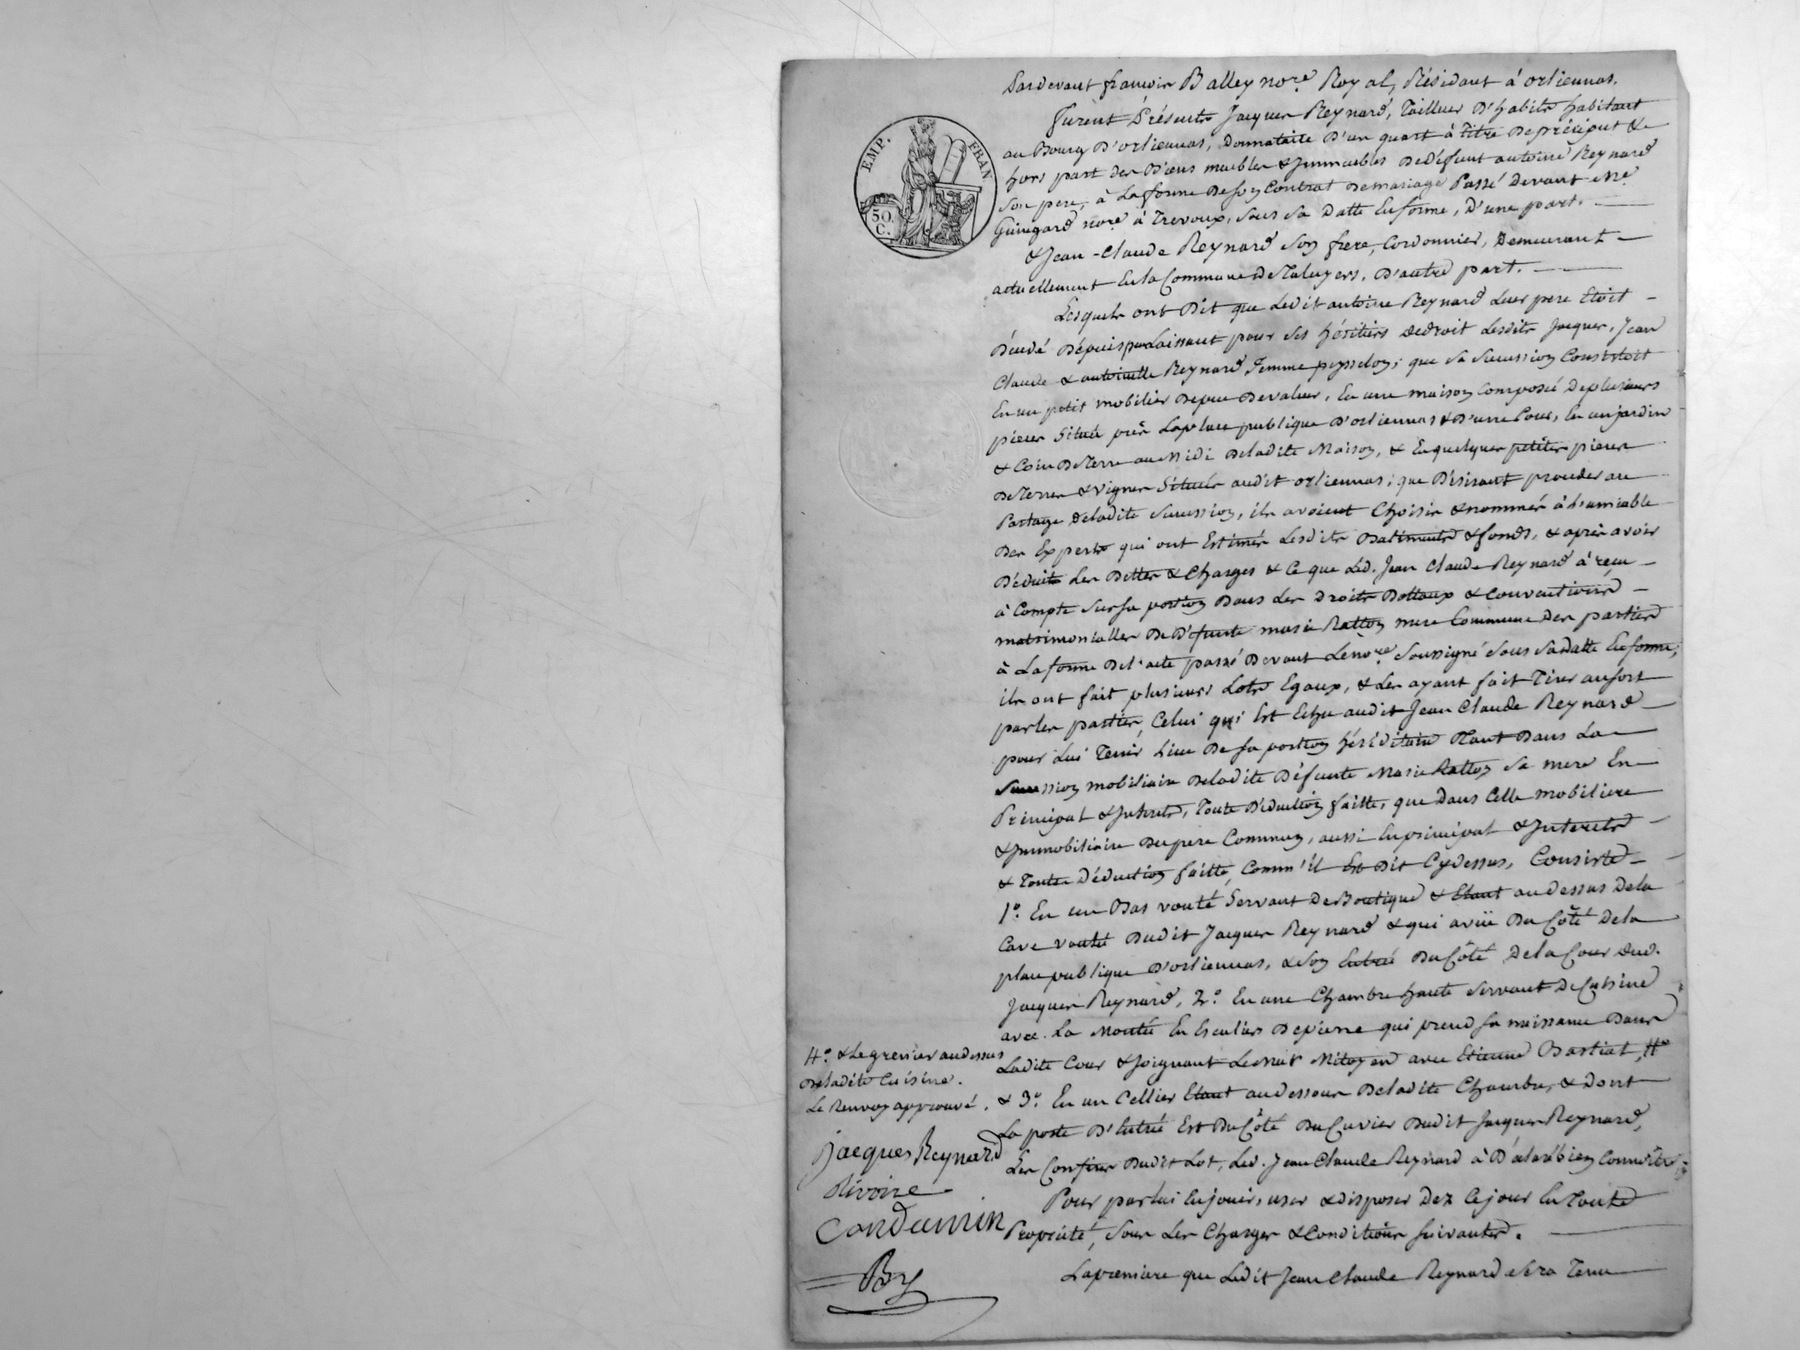 Pardevant francois Balley no.re Royal, Résidant à orliennas.
furent Présents Jacques Reynard, Tailleur D'habits habitant
EMP. FRAN
50. C.
au Bourg D'orliennas, Donnataire D'un quart à titre De préciput &
hors part des Biens meubles & Immeubles Dedéfunt antoine Reynard
Son pere, à La forme De son Contrat De mariage Passé Devant Me.
no.re à Trevoux, sous sa Datte En forme, D'une part.
& Jean-Claude Reynard Son frere, Cordonnier, Demeurant
actuellement En la Commune De Taluyers, D'autre part.
Lesquels ont Dit que Ledit antoine Reynard Leur pere Etoit
Décédé Depuis peu Laissant pour ses héritiers De droit Lesdits Jacques, Jean
Claude & antoinette Reynard, femme peysselon; que sa succession Consistoit
En un petit mobilier De peu De valeur, En une maison Composée De plusieurs
pieces Située près La place publique D'orliennas & D'une Cour, En un jardin
& Coin De Terre au Midi De ladite Maison, & En quelques petites pieces
De Terres & vignes Situées audit orliennas; que Désirant procéder au
Partage De ladite succession, ils avoient Choisis & nommés à L'amiable
Des Experts qui ont Estimés Lesdits Batiments & fonds, & après avoir
Déduits Les Dettes & Charges & Ce que Led. Jean Claude Reynard à reçu
à Compte sur sa portion Dans Les Droits Dottaux & Conventions
matrimonialles De Défunte marie Ratton mere Commune Des parties
à La forme De l'acte passé Devant Le no.re Soussigné Sous Sa datte En forme;
ils ont fait plusieurs Lots Egaux, & Les ayant fait Tirer au sort
par les parties, Celui qui Est Echu audit Jean Claude Reynard
pour Lui Tenir Lieu De sa portion héréditaire Tant Dans La
Succession mobiliaire De ladite Défunte Marie Ratton Sa mere En
Principal & Intérets, Toute Déduction faitte, que Dans Celle mobiliere
& Immobiliaire Du pere Commun, aussi En principal & Intérets
& Toutes Déduction faitte, Comm'il Est Dit Cydessus, Consiste
1°. En un Bas vouté Servant De Boutique & Etant au dessus De la
Cave voutée Dudit Jacques Reynard & qui a vüe Du Côté De la
place publique D'orliennas, & Son Entrée Du Côté De la Cour Dud.
Jacques Reynard, 2°. En une Chambre haute Servant De Cuisine
avec La Montée En Escaliers De pierre qui prend sa naissance Dans
Ladite Cour & Joignant Le Mur Mitoyen avec Etienne Bastiat, #°
& 3°. En un Cellier Etant au dessous De ladite Chambre, & Dont
La porte D'Entrée Est Du Côté Du Cuvier Dudit Jacques Reynard,
Les Confins Dudit Lot, Led. Jean Claude Reynard à Déclaré bien Connoitre
Pour par lui En jouir, user & disposer Dez Ce jour En Toute
Propriété, Sous Les Charges & Conditions suivantes.
La premiere que Ledit Jean Claude Reynard Sera Tenu
#°. & Le grenier au dessus
De ladite Cuisine.
Le Renvoy approuvé.
Jacques Reynard
Rivoire
Condamin
By